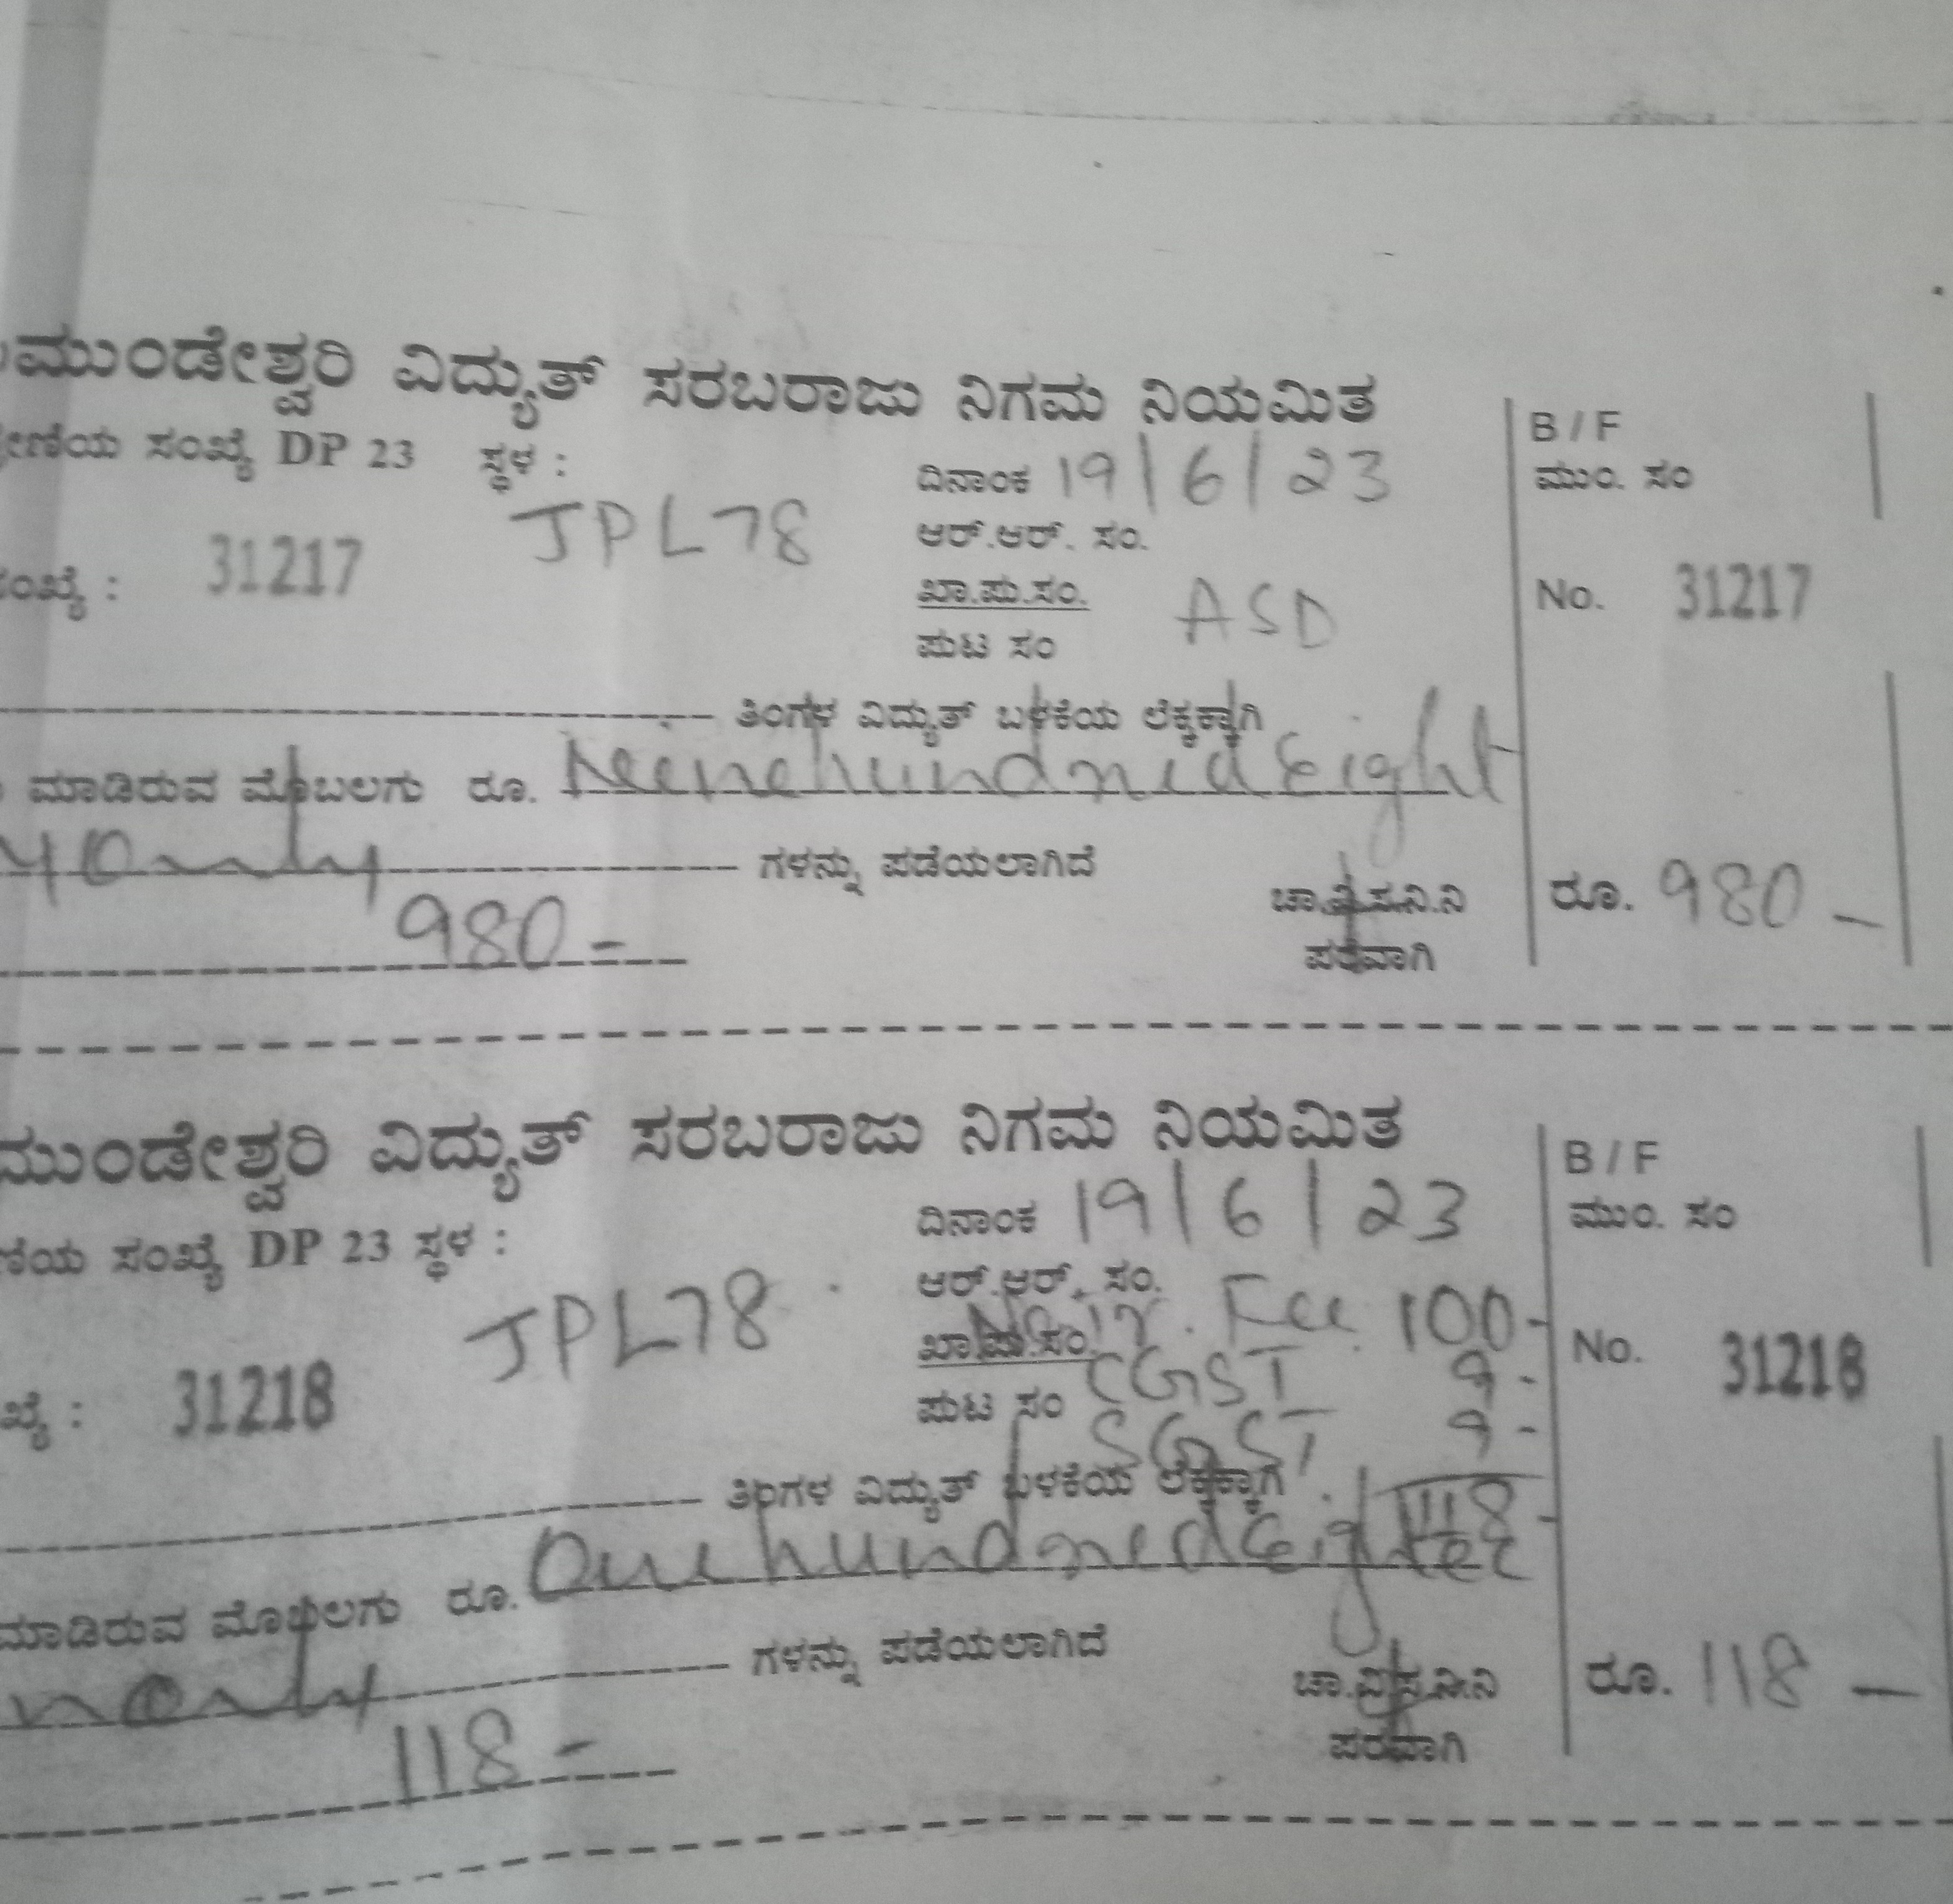 ಮುಂಡೇಶ್ವರಿ ವಿದ್ಯುತ್ ಸರಬರಾಜು ನಿಗಮ ನಿಯಮಿತ
ಣಿಯ ಸಂಖ್ಯೆ DP 23 ಸ್ಥಳ :
JPL78
ಸಂಖ್ಯೆ : 31217
ದಿನಾಂಕ 19/6/23
ಆರ್.ಆರ್. ಸಂ.
ಖಾ.ಪು.ಸಂ. ASD
ಪುಟ ಸಂ
ತಿಂಗಳ ವಿದ್ಯುತ್ ಬಳಕೆಯ ಲೆಕ್ಕಕ್ಕಾಗಿ
ಮಾಡಿರುವ ಮೊಬಲಗು ರೂ. Ninehundred Eight
y Only ಗಳನ್ನು ಪಡೆಯಲಾಗಿದೆ
980=
ಚಾ.ವಿ.ಸ.ನಿ.ನಿ
ಪರವಾಗಿ
B / F
ಮುಂ. ಸಂ
No. 31217
ರೂ. 980 –
ಮುಂಡೇಶ್ವರಿ ವಿದ್ಯುತ್ ಸರಬರಾಜು ನಿಗಮ ನಿಯಮಿತ
ಣಿಯ ಸಂಖ್ಯೆ DP 23 ಸ್ಥಳ :
JPL78
ಖ್ಯೆ : 31218
ದಿನಾಂಕ 19/6/23
ಆರ್.ಆರ್. ಸಂ.
Fee 100-
ಖಾ.ಪು.ಸಂ.
CGST 9-
ಪುಟ ಸಂ
SGST 9-
118-
ತಿಂಗಳ ವಿದ್ಯುತ್ ಬಳಕೆಯ ಲೆಕ್ಕಕ್ಕಾಗಿ
ಮಾಡಿರುವ ಮೊಬಲಗು ರೂ. One hundred Eightee
n Only ಗಳನ್ನು ಪಡೆಯಲಾಗಿದೆ
118=
ಚಾ.ವಿ.ಸ.ನಿ.ನಿ
ಪರವಾಗಿ
B / F
ಮುಂ. ಸಂ
No. 31218
ರೂ. 118 –